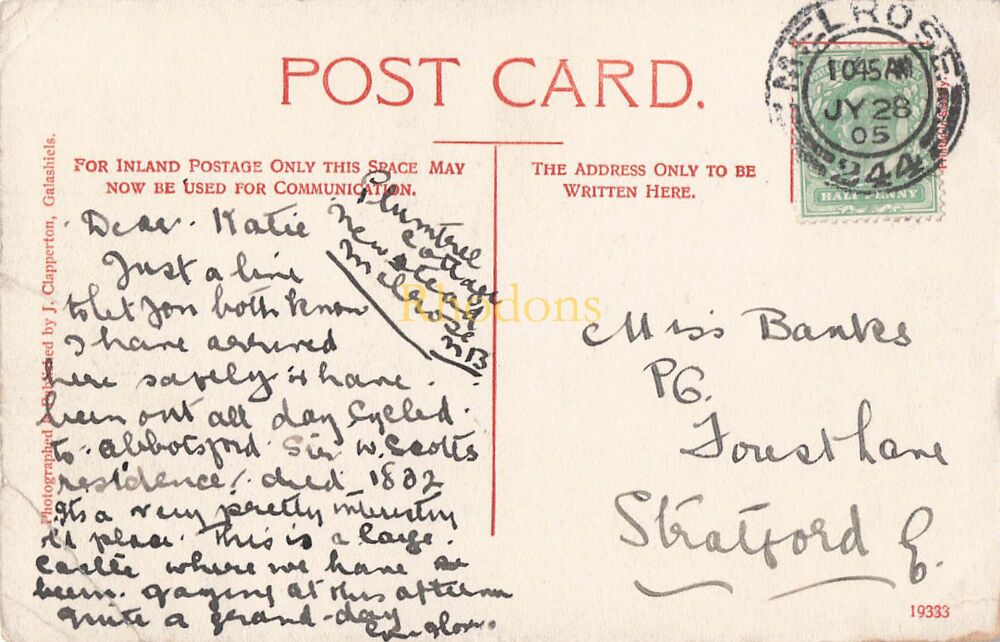 POST CARD.
FOR INLAND POSTAGE ONLY THIS SPACE MAY
NOW BE USED FOR COMMUNICATION.
THE ADDRESS ONLY TO BE
WRITTEN HERE.
MELROSE
10 45 AM
JY 28
05
244
HALF PENNY
Plumtree
Cottage
Newstead
Melrose
NB
Dear Katie
Just a line
to let you both know
I have arrived
here safely & have
been out all day Cycled
to Abbotsford Sir W. Scotts
residence! died 1832
Its a very pretty
old place. This is a large
Castle where we have
been gazing at this afternn
quite a grand day
Miss Banks
PG.
Forest Lane
Stratford E.
Photographed & Published by J. Clapperton, Galashiels.
Rhodons
19333